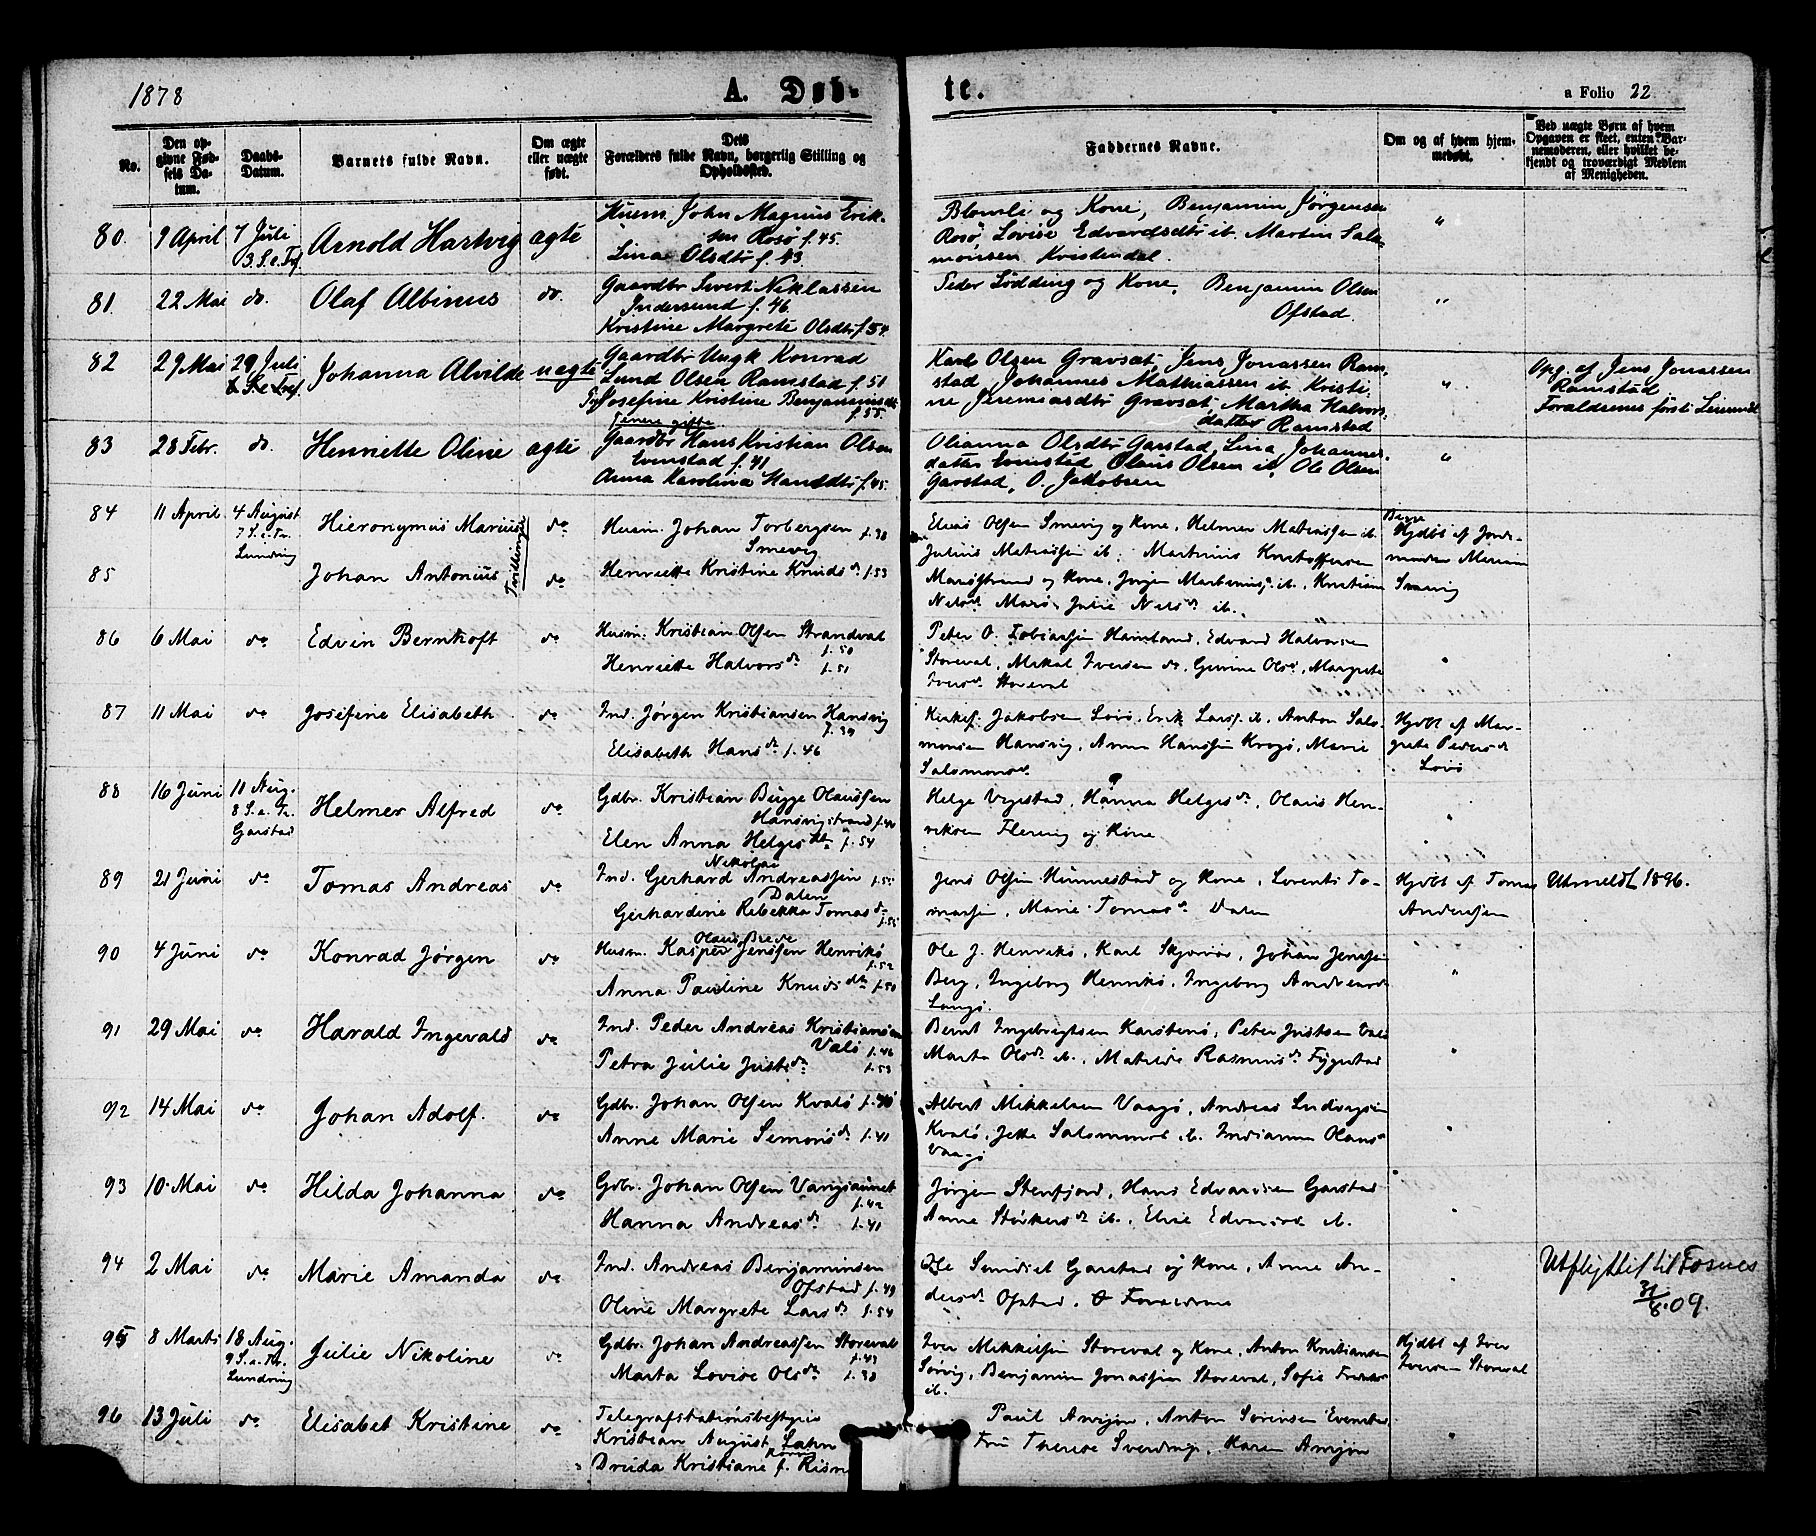 1878
A. Døb-
te.
a Folio 22
No.
Den op-
givne Fød-
sels Da-
tum.
Daabs-
Datum.
Barnets fulde Navn.
Om ægte
eller uægte
født.
Dets
Forældres fulde Navn, borgerlig Stilling og
Opholdssted.
Faddernes Navne.
Om og af hvem hjem-
medøbt.
Ved uægte Børn af hvem
Opgaven er skeet, enten Bar-
nemoderen, eller hvilket be-
kjendt og troværdigt Medlem
af Menigheden.
80. 9 April 7 Juli
3. S. e. Tref. Arnold Hartvig ægte
Husm. John Magnus Erik-
sen Rosø f. 45.
Lina Olsdtr f. 43
Blomli og Kone, Benjamin Jørgensen
Rosø, Lovise Edvardsdtr ib. Martin Salo-
monsen Kristendal. "
81. 22 Mai do. Olaf Albinus do.
Gaardbr Sivert Niklassen
Indersund f. 46.
Kristine Margrete Olsdtr f. 54
Peder Lødding og Kone, Benjamin Olsen
Ofstad. "
82 29 Mai 29 Juli
Johanna Alvilde uægte
Gaardbr Ungk Konrad
Lund Olsen Ramstad f. 51
Josefine Kristine Benjaminsdtr
f. 55
Karl Olsen Gravsæt, Jens Jonassen Ram-
stad, Johannes Mathiassen ib. Kristi-
ne Jeremiasdtr Gravsæt, Martha Halvors-
datter Ramstad "
Opg. af Jens Jonassen
Ramstad
Forældrenes første Leiermaal
83 28 Febr. do. Henriette Oline ægte
Gaardbr Hans Kristian Olsen
Evenstad f. 41
Anna Karolina Hansdtr f. 45.
Olianna Olsdtr Garstad, Lina Johannes-
datter Evenstad, Olaus Olsen ib, Ole Olsen
Garstad, O. Jakobsen "
84 11 April 4 August
7 S. e. Tr.
Lundring Hieronymus Marius do
Tvillinger
Husm. Johan Torbergsen f. 38
Smevig
Elias Olsen Smevig og Kone, Helmer Matiassen ib.
Julius Matiassen ib. Martinus Kristoffersen
Hjdbt af Jord-
moderen
Smevig
85 Johan Antonius do
Henriette Kristine Knudsdr f. 53
Marøstrand og Kone, Jørgen Martinus. ib., Kristian
Nels. Marø, Julie Nelsdr ib.
86 6 Mai do Edvin Bernhoft do
Husm. Kristian Olsen Strandval
f. 50
Henriette Halvorsdr f. 51
Peter O. Tobiassen Hamland, Edvard Halvorsen
Storeval, Mikal Iversen do, Gurine Olsd, Margrete
Iversdr Storeval "
87 11 Mai do Josefine Elisabeth do
Ind. Jørgen Kristiansen Hansvig
f. 39
Elisabeth Hansdr f. 46
Jakobsen Lovø, Erik Larss. ib. Anton Salo-
monsen Hansvig, Anne Hanssen Krogø, Marie
Salomonsdr.
Hjdbt af Mar-
grete Pedersdr
Lovø
88 16 Juni 11 Aug.
8 S. e. Tr.
Garstad Helmer Alfred do
Gdbr. Kristian Bugge Olaussen
Hansvigstrand f. 40
Elen Anna Helgesdtr f. 54
Helge Vegstad, Hanna Helgesdr, Olaus Hen-
riksen Flerring og Kone "
89 21 Juni do Tomas Andreas do
Nikolai
Ind. Gerhard Andreassen
Dalen
Gerhardine Rebekka Tomasdr f. 55
Jens Olsen Himmestad og Kone, Lorents To-
massen, Marie Tomasdr Dalen
Hjdbt af Tomas
Anderssen
Utmeldt 1896.
90 4 Juni do Konrad Jørgen do
Olaus Brede
Husm. Kasper Jenssen Henrikø
f. 52
Anna Pauline Knudsdtr f. 50
Ole J. Henrikø, Karl Skjærvø, Johan Jenssen
Berg, Ingeborg Henrikø, Ingeborg Andreasdr
Langø "
91 29 Mai do Harald Ingevald do
Ind. Peder Andreas Kristiansen
Valø f. 46
Petra Julie Justsdr f. 53
Bernt Ingebrigtsen Karstenø, Peter Justsen Valø
Marta Olsdr ib., Matilde Rasmusdr Fygestad "
92 14 Mai do Johan Adolf. do
Gdbr. Johan Olsen Kvalø f. 40
Anne Marie Semonsdr f. 41
Albert Mikkelsen Vaagø, Andreas Ludvigsen
Kvalø, Jette Salomonsd ib. Indianna Olausd
Vaagø "
93 10 Mai do Hilda Johanna do
Gdbr. Johan Olsen Vangsaunet
f. 42
Hanna Andreasdr f. 41
Jørgen Stenfjord, Hans Edvardsen Garstad
Anne Størkersdr ib., Elise Edvardsd ib. "
94 2 Mai do Marie Amanda do
Ind. Andreas Benjaminsen
Ofstad f. 49
Oline Margrete Larsdr f. 54
Ole Garstad og Kone, Anne An-
dersdr Ofstad, & Forældrene "
Utflyttet til Fosnes
31/8.09.
95 8 Marts 18 Aug.
9 S. e. Tr.
Lundring Julie Nikoline do
Gdbr. Johan Andreassen Storeval
f. 43
Marta Lovise Olsdr f. 38
Iver Mikkelsen Storeval og Kone, Anton Kristiansen
Sørvig, Benjamin Jonassen Storeval, Sofie
ib.
Hjdbt af Iver
Iversen Storeval
96 13 Juli do Elisabet Kristine do
Telegrafstationsbestyrer
Kristian August Lahn
Druda Kristiane f. Risn
Paul Anzjøn, Anton Sørensen Evenstad
Fru Therese Sverdrup, Karen Anzjøn "